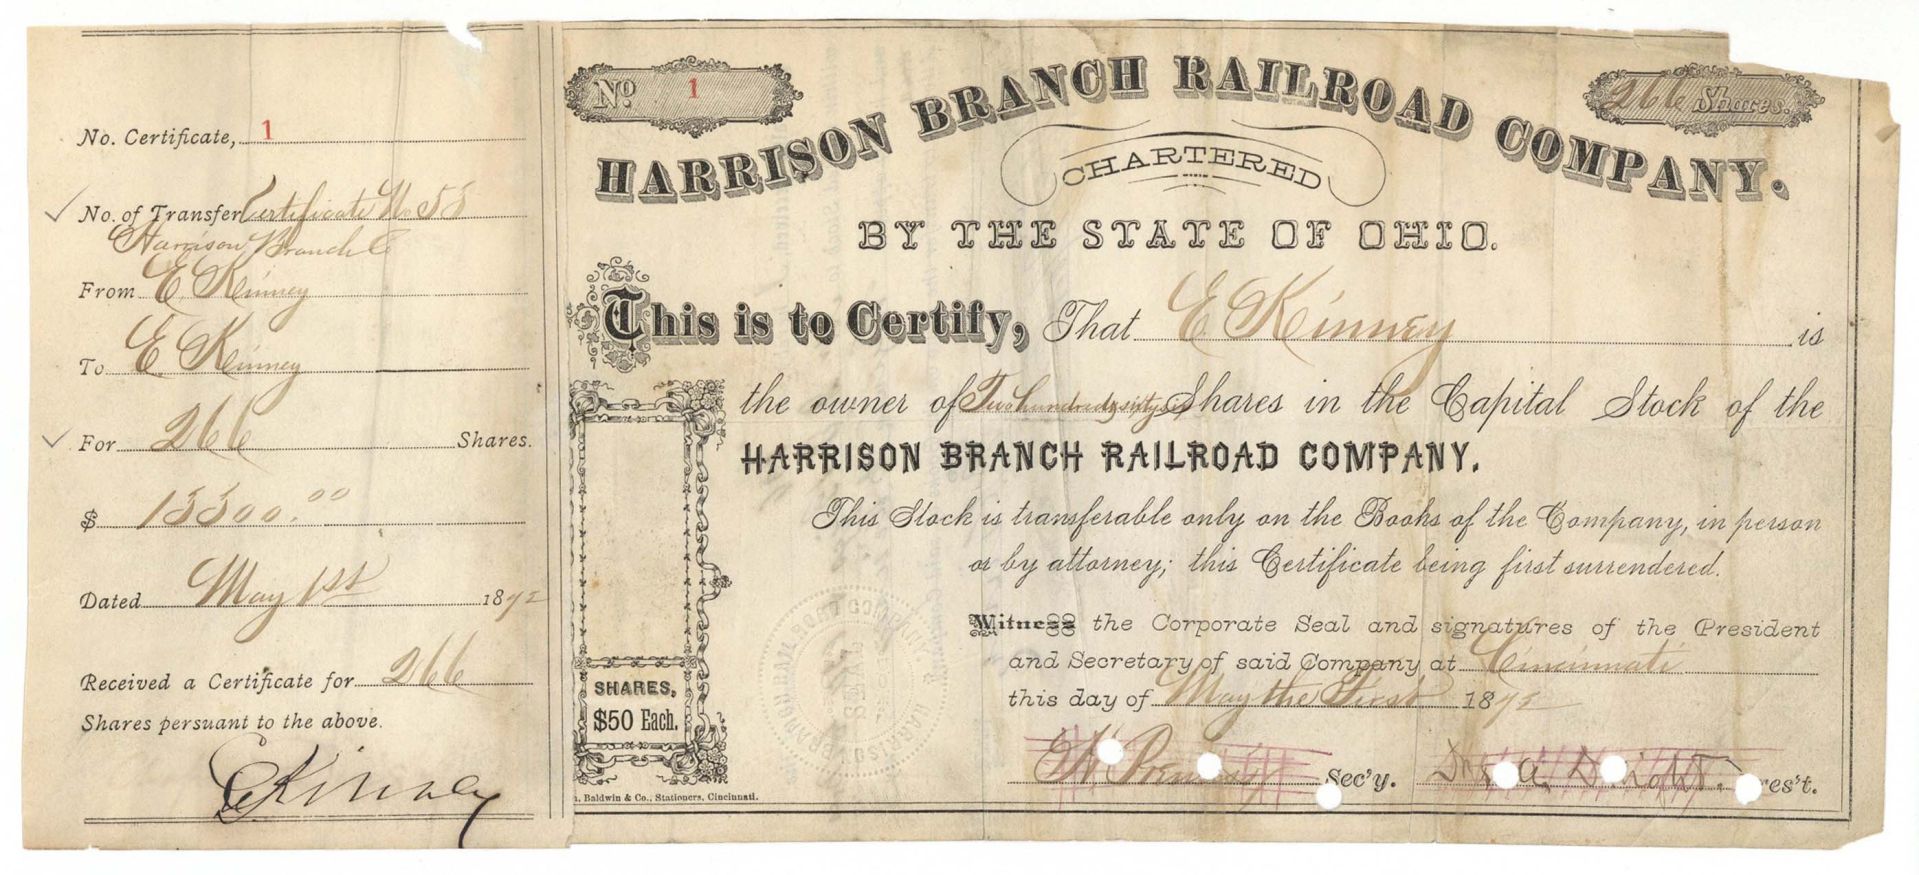 No. Certificate, 1
No. of Transfer Certificate No 55
Harrison Branch Co
From E Kinney
To E Kinney
For 266 Shares.
$ 13300.00
Dated May 1st 1872
Received a Certificate for 266
Shares persuant to the above.
E Kinney
No. 1
266 Shares.
HARRISON BRANCH RAILROAD COMPANY.
CHARTERED
BY THE STATE OF OHIO.
This is to Certify, That E Kinney is
the owner of Two hundred & sixty six Shares in the Capital Stock of the
HARRISON BRANCH RAILROAD COMPANY.
This Stock is transferable only on the Books of the Company, in person
or by attorney; this Certificate being first surrendered.
Witness the Corporate Seal and signatures of the President
and Secretary of said Company at Cincinnati
this day of May the First 1872
Sec'y.
Pres't.
SHARES,
$50 Each.
Baldwin & Co., Stationers, Cincinnati.
HARRISON BRANCH RAIL ROAD COMPANY
SEAL